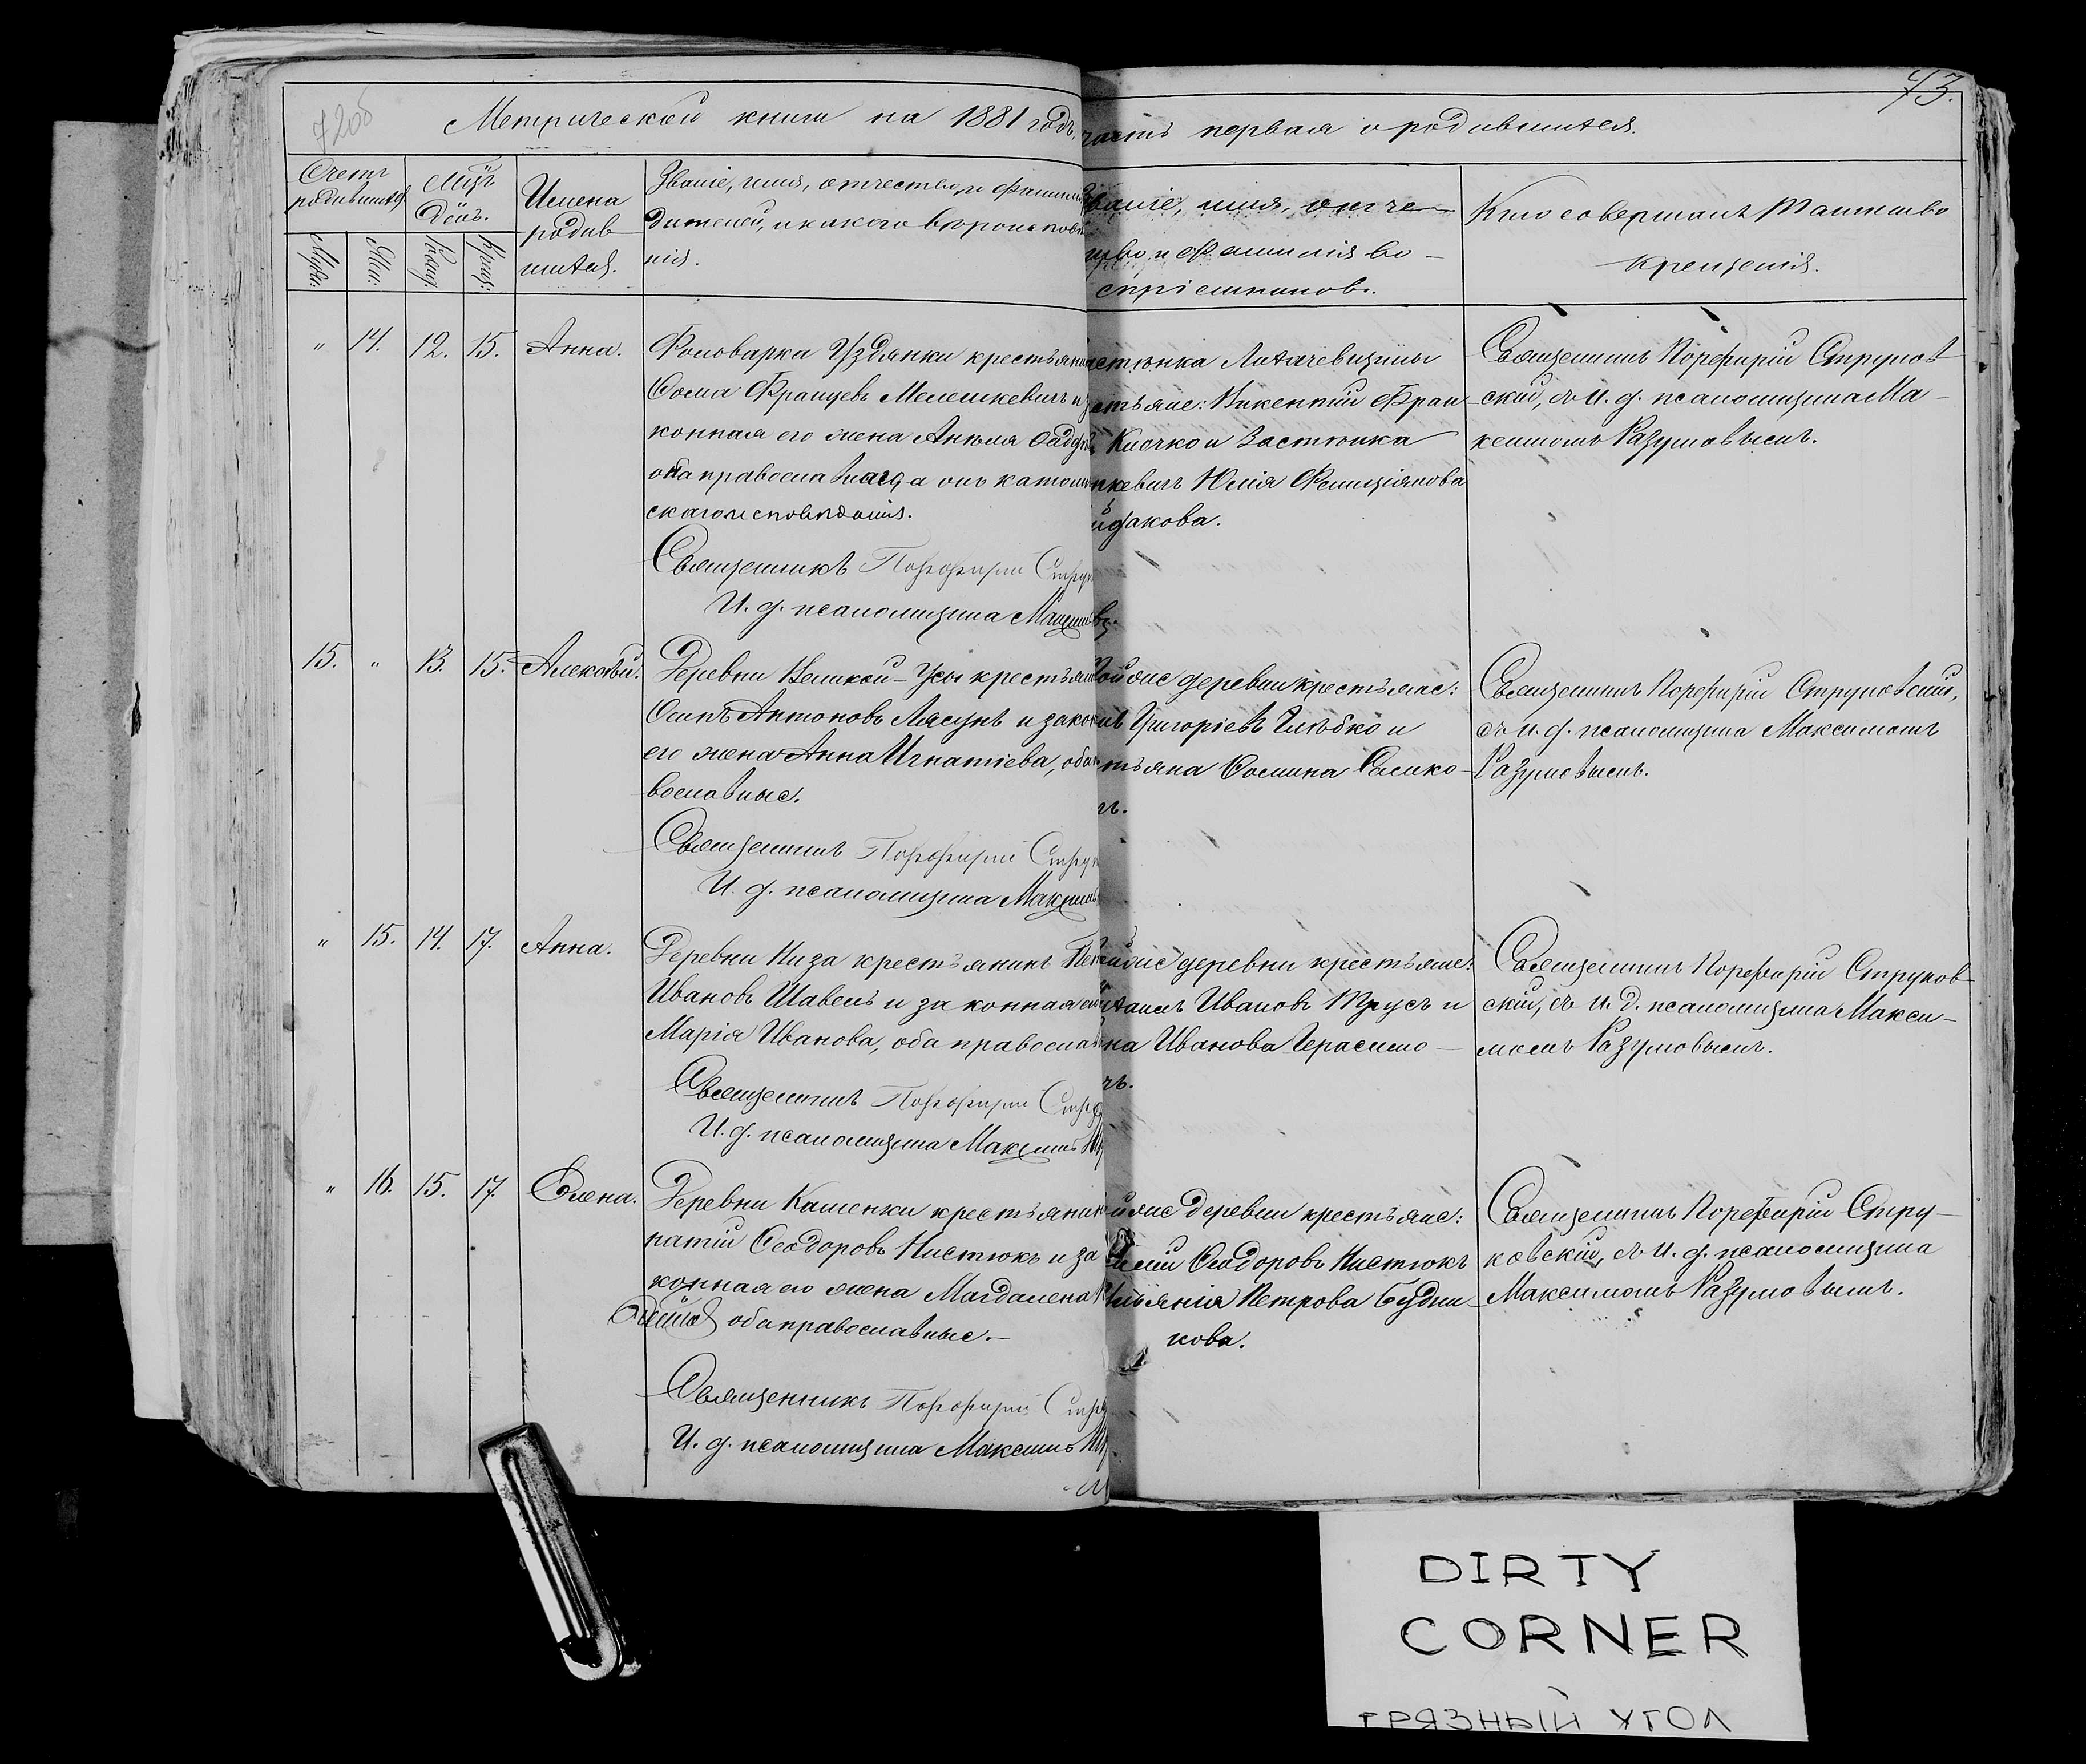 72об
73.
Метрической книги на 1881 годъ,
часть первая о родившихся.
Счетъ родившихся
Мѣцъ День.
Муж.
Жен.
Рожд.
Крещ.
Имена
родив
шихся.
Званіе, имя, отчество, и фамилія
дителей, и какого вѣроисповѣ
нія.
Званіе, имя, отче
ство, и фамилія во-
спріемниковъ.
Кто совершалъ таинство
крещенія.
" 14. 12. 15. Анна.
Фольварка Уздянки крестьянин
Ѳома Францевъ Мелешкевичъ и з
конная его жена Анѣля
она православнаго, а онъ католи
скаго исповѣданія.
Священникъ Порфирій Струк
И. д. псаломщика Максимъ
стьяне: Викентій Фран-
Клочко и Застѣнка
нкевичъ Юлія Фелиціянова
Священникъ Порфирій Струков
скій, съ и. д. псаломщика Ма-
ксимомъ Разумовымъ.
15. " 13. 15. Алексѣй.
Деревни Великой-Усы крестьянин
Осипъ Антоновъ Лясунъ и закон
его жена Анна Игнатіева, оба
вославные.
Священникъ Порфирій Струк
И. д. псаломщика Максимъ
той же деревни крестьяне:
Григоріевъ Глѣбко и
тьяна Ѳомина
чъ.
Священникъ Порфирій Струковскій,
съ и. д. псаломщика Максимомъ
Разумовымъ.
" 15. 14. 17. Анна.
Деревни Низа крестьянинъ
Ивановъ Шавель и законная его
Марія Иванова, оба православ
Священникъ Порфирій Стру
И. д. псаломщика Максимъ
той же деревни крестьяне:
Ивановъ Трусъ и
на Иванова Герасимо-
чъ.
Священникъ Порфирій Струков
скій, съ и. д. псаломщика Макси-
момъ Разумовымъ.
" 16. 15. 17. Елена.
Деревни Каменки крестьянин
натій Ѳеодоровъ Нистюкъ и за
конная его жена Магдалена
оба православные.-
Священникъ Порфирій Стру
И. д. псаломщика Максимъ
той же деревни крестьяне:
Ѳеодоровъ Нистюкъ
Петрова Будни
кова.
Священникъ Порфирій Стру-
ковскій, съ и. д. псаломщика
Максимомъ Разумовымъ.
DIRTY
CORNER
ГРЯЗНЫЙ УГОЛ